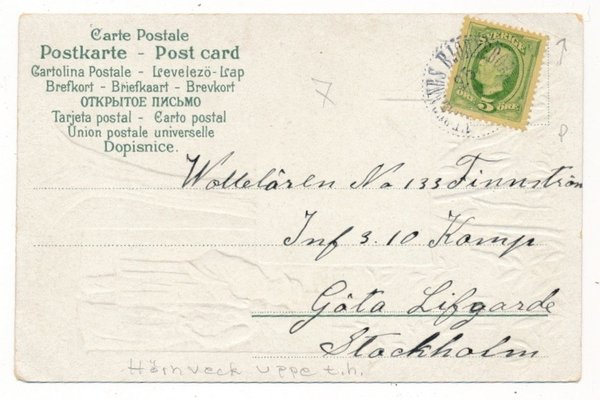 Carte Postale
Postkarte - Post card
Cartolina Postale - Levelező-Lap
Brefkort - Briefkaart - Brevkort
ОТКРЫТОЕ ПИСЬМО
Tarjeta postal - Carto postal
Union postale universelle
Dopisnice.
SVERIGE
ÖRE 5 ÖRE
7
P
No 133 Finnström
Inf 3.10 Komp
Göta Lifgarde
Stockholm
Hörnveck uppe t.h.